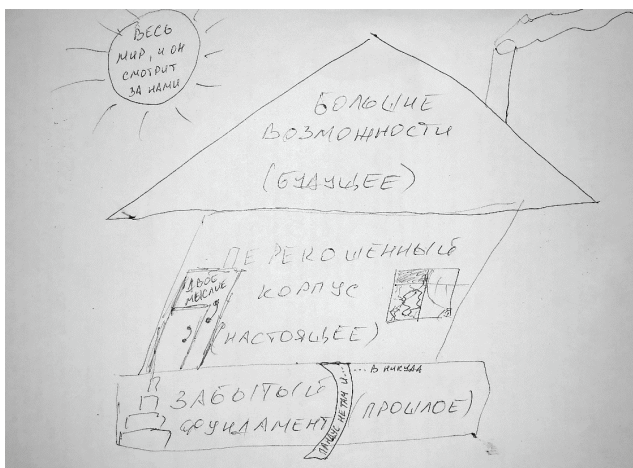 ВЕСЬ
МИР, И ОН
СМОТРИТ
ЗА НАМИ
БОЛЬШИЕ
ВОЗМОЖНОСТИ
(БУДУЩЕЕ)
ПЕРЕКОШЕННЫЙ
КОРПУС
(НАСТОЯЩЕЕ)
ДВОЕ
МЫСЛИЕ
ЗАБЫТЫЙ
ФУНДАМЕНТ
(ПРОШЛОЕ)
ПАНДУС НЕТАМ И...
... В НИКУДА